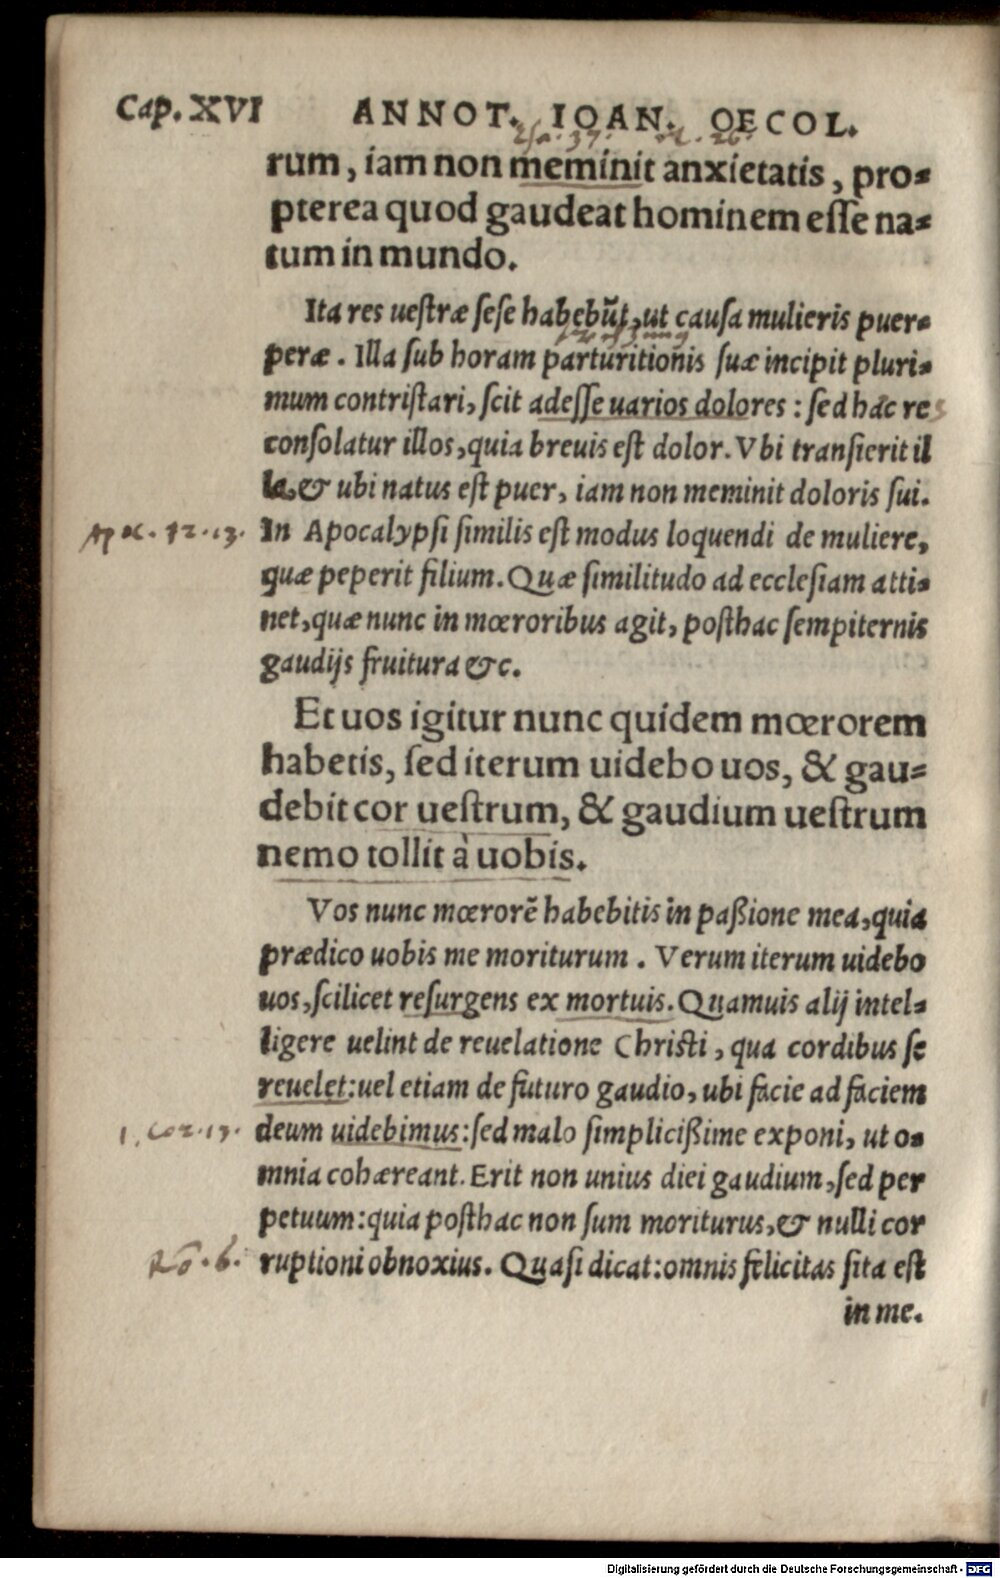 Cap. XVI ANNOT. IOAN. OECOL.
rum, iam non meminit anxietatis, pro⸗
pterea quod gaudeat hominem eſſe na⸗
tum in mundo.
Ita res ueſtræ ſeſe habebūt, ut cauſa mulieris puer⸗
peræ. Illa ſub horam parturitionis ſuæ incipit pluri⸗
mum contriſtari, ſcit adeſſe uarios dolores: ſed hac re
conſolatur illos, quia breuis eſt dolor. Vbi tranſierit il
le, & ubi natus eſt puer, iam non meminit doloris ſui.
Apoc. 12. 13.
In Apocalypſi ſimilis eſt modus loquendi de muliere,
quæ peperit filium. Quæ ſimilitudo ad eccleſiam atti⸗
net, quæ nunc in mœroribus agit, poſthac ſempiternis
gaudijs fruitura &c.
Et uos igitur nunc quidem mœrorem
habetis, ſed iterum uidebo uos, & gau⸗
debit cor ueſtrum, & gaudium ueſtrum
nemo tollit à uobis.
Vos nunc mœrorē habebitis in paßione mea, quia
prædico uobis me moriturum. Verum iterum uidebo
uos, ſcilicet reſurgens ex mortuis. Quamuis alij intel⸗
ligere uelint de reuelatione Chriſti, qua cordibus ſe
reuelet: uel etiam de futuro gaudio, ubi facie ad faciem
1. Cor. 13.
deum uidebimus: ſed malo ſimplicißime exponi, ut o⸗
mnia cohæreant. Erit non unius diei gaudium, ſed per
petuum: quia poſthac non ſum moriturus, & nulli cor
Ro. 6.
ruptioni obnoxius. Quaſi dicat: omnis felicitas ſita eſt
in me.
Digitalisierung gefördert durch die Deutsche Forschungsgemeinschaft - DFG